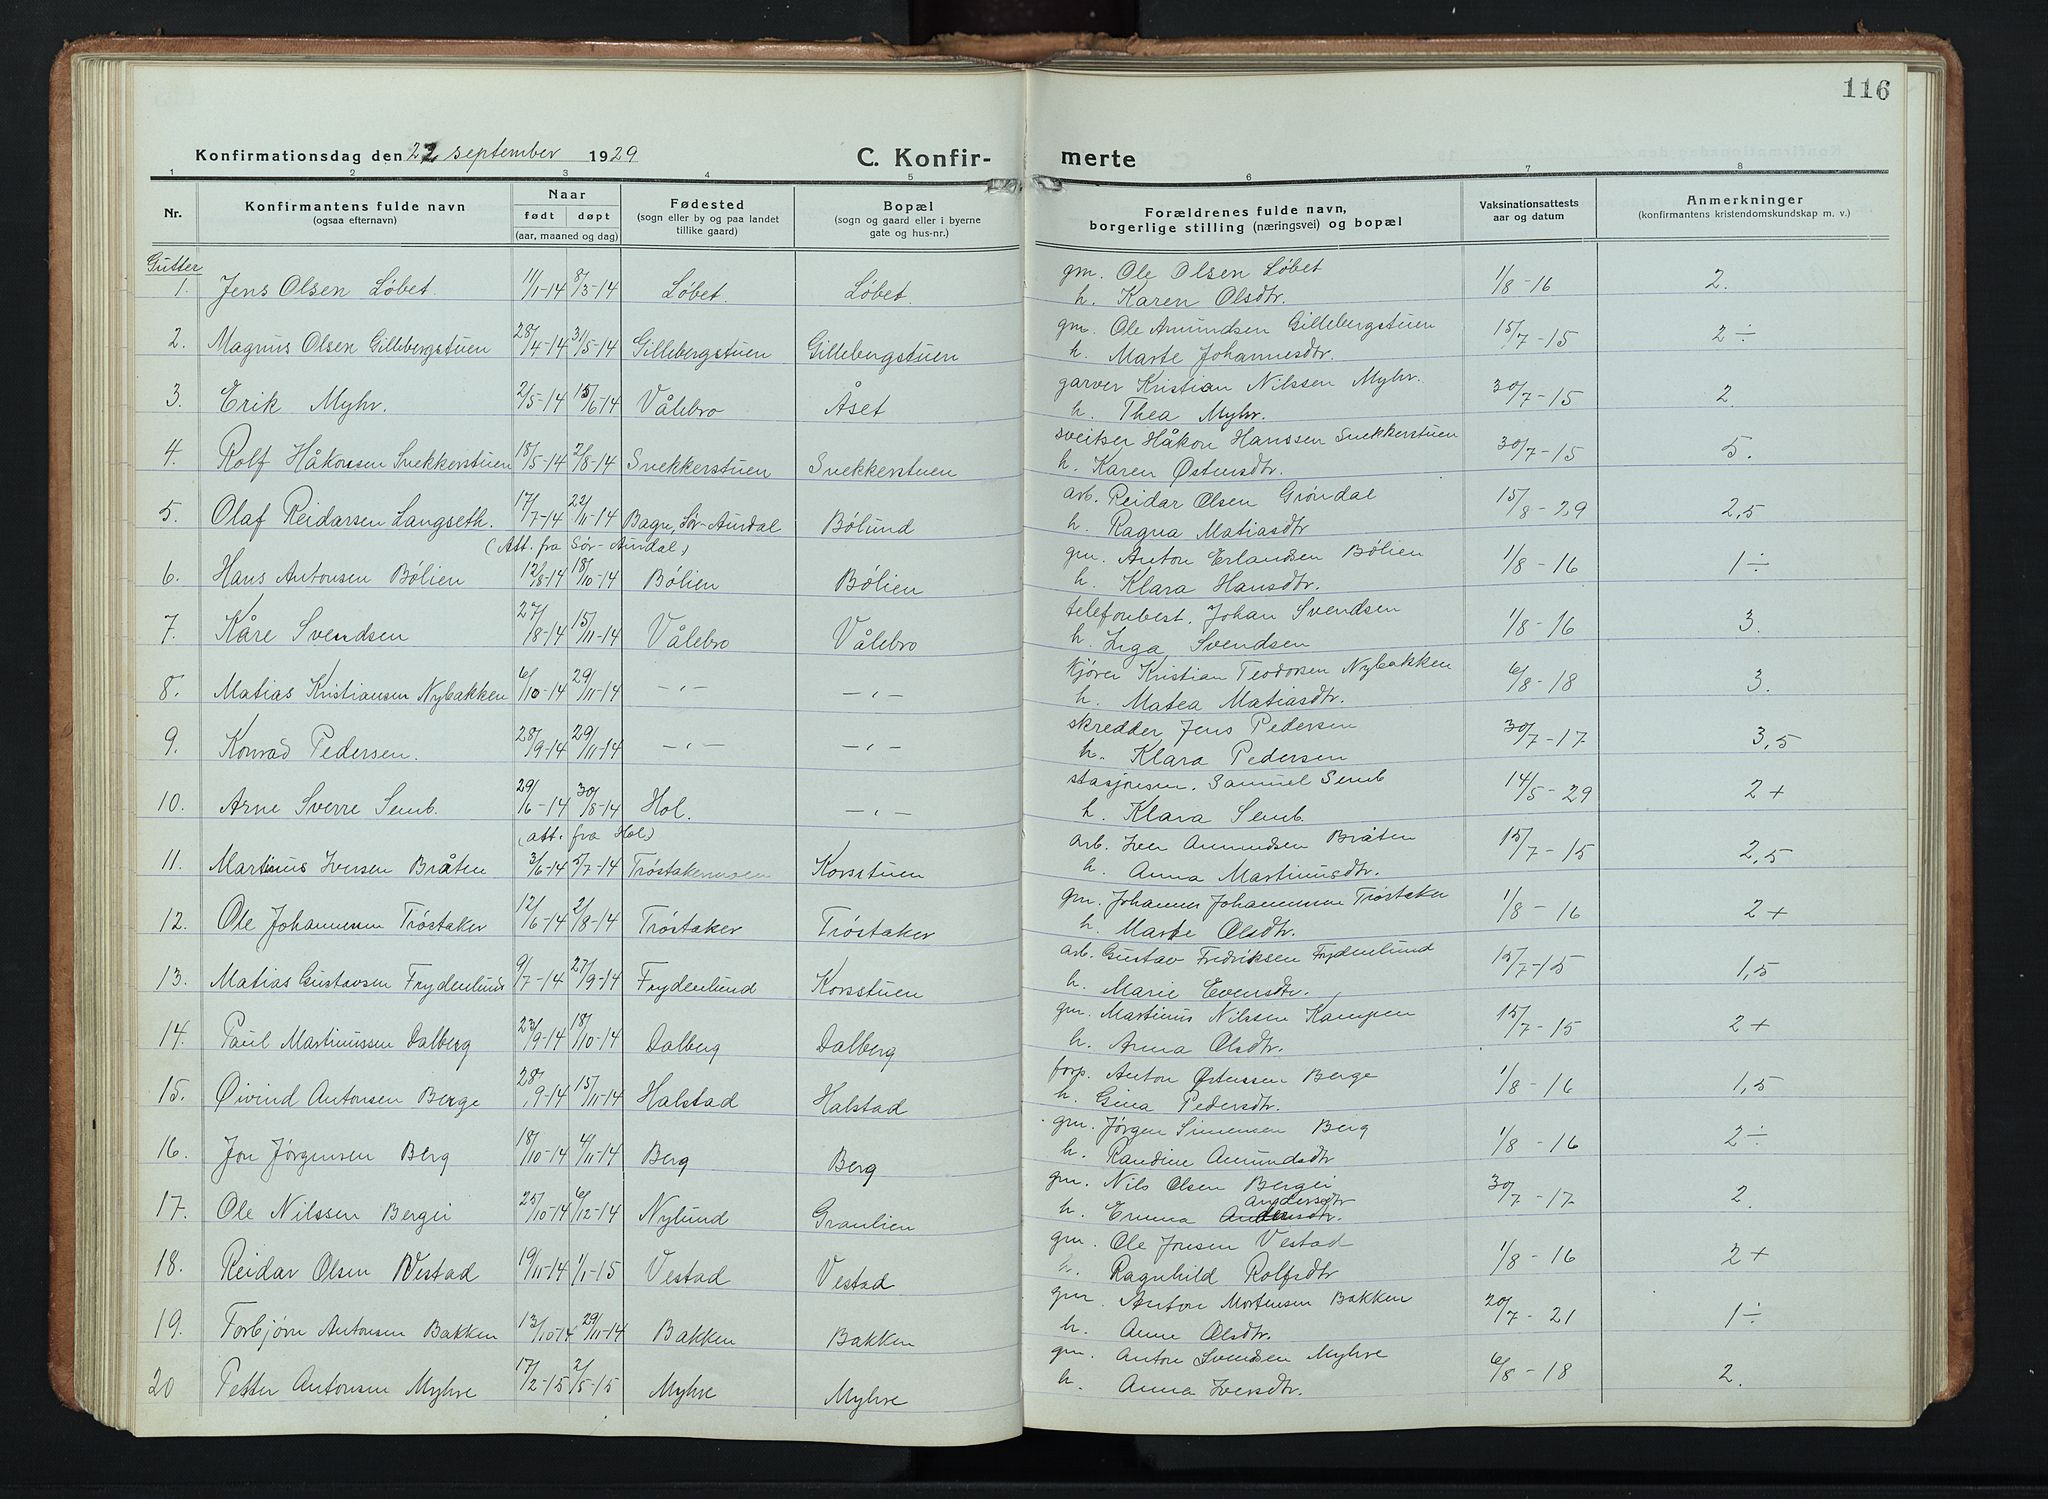 116
Konfirmationsdag den 22 september 1929
C. Konfir-
merte
1 2 3 4 5 6 7 8
Nr.
Konfirmantens fulde navn
(ogsaa efternavn)
Naar
født døpt
(aar, maaned og dag)
Fødested
(sogn eller by og paa landet
tillike gaard)
Bopæl
(sogn og gaard eller i byerne
gate og hus-nr.)
Forældrenes fulde navn,
borgerlige stilling (næringsvei) og bopæl
Vaksinationsattests
aar og datum
Anmerkninger
(konfirmantens kristendomskundskap m. v.)
Gutter
1. Jens Olsen Løbet. 11/1-14 8/3-14 Løbet. Løbet. gm. Ole Olsen Løbet 1/8-16 2.
h. Karen Olsdtr.
2. Magnus Olsen Gillebergstuen 28/4-14 31/5-14 Gillebergstuen Gillebergstuen gm. Ole Amundsen Gillebergstuen 15/7-15 2÷
h. Marte Johannesdtr.
3. Erik Myhr. 2/5-14 15/6-14 Vålebro Åset garver Kristian Nilssen Myhr. 30/7-15 2.
h. Thea Myhr.
4. Rolf Håkonsen Snekkerstuen 18/5-14 2/8-14 Snekkerstuen Snekkerstuen sveitser Håkon Hanssen Snekkerstuen 30/7-15 5.
h. Karen Østensdtr.
5. Olaf Reidarsen Langseth. 17/7-14 22/11-14 Bagn, Sør-Aurdal Bølund arb. Reidar Olsen Grøndal 15/8-29 2,5
(Att. fra Sør-Aurdal) h. Ragna Matiasdtr
6. Hans Antonsen Bølien 12/8-14 18/10-14 Bølien Bølien gm. Anton Erlandsen Bølien 1/8-16 1÷
h. Klara Hansdtr.
7. Kåre Svendsen 27/8-14 15/11-14 Vålebro Vålebro telefonbest. Johan Svendsen 1/8-16 3.
h. Inga Svendsen
8. Matias Kristiansen Nybakken 6/10-14 29/11-14 -"- -"- kjører Kristian Teodorsen Nybakken 6/8-18 3.
h. Matea Matiasdtr.
9. Konrad Pedersen. 28/9-14 29/11-14 -"- -"- skredder Jens Pedersen 30/7-17 3,5
h. Klara Pedersen
10. Arne Sverre Semb. 29/6-14 30/8-14 Hol. -"- stasjonsm. Samuel Semb 14/5-29 2+
(att. fra Hol) h. Klara Semb.
11. Martinus Iversen Bråten 3/6-14 5/7-14 Trøstakermoen Korsstuen arb. Iver Amundsen Bråten 15/7-15 2,5
h. Anna Martinusdtr.
12. Ole Johannessen Trøstaker 12/6-14 2/8-14 Trøstaker Trøstaker gm. Johannes Johannessen Trøstaker 1/8-16 2+
h. Marte Olsdtr.
13. Matias Gustavsen Frydenlund 9/7-14 27/9-14 Frydenlund Korsstuen arb. Gustav Fredriksen Frydenlund 15/7-15 1,5
h. Marie Evensdtr.
14. Paul Martinussen Dalberg 23/9-14 18/10-14 Dalberg Dalberg gm. Martinus Nilssen Kampen 15/7-15 2+
h. Anna Olsdtr.
15. Øivind Antonsen Berge 28/9-14 15/11-14 Halstad Halstad forp. Anton Østenssen Berge 1/8-16 1,5
h. Gina Pedersdtr.
16. Jon Jørgensen Berg 18/10-14 4/11-14 Berg Berg gm. Jørgen Simensen Berg 1/8-16 2÷
h. Randine Amundsdtr
17. Ole Nilssen Bergei 25/10-14 6/12-14 Nylund Granlien gm. Nils Olsen Bergei 30/7-17 2.
Andersdtr
h. Emma
18. Reidar Olsen Vestad 19/11-14 1/1-15 Vestad Vestad gm. Ole Jonsen Vestad 1/8-16 2+
h. Ragnhild Rolfsdtr
19. Torbjørn Antonsen Bakken 13/10-14 29/11-14 Bakken Bakken gm. Anton Mortensen Bakken 20/7-21 1÷
h. Anne Olsdtr.
20 Petter Antonsen Myhre 17/2-15 2/5-15 Myhre Myhre gm. Anton Svendsen Myhre 6/8-18 2.
h. Anna Iversdtr.